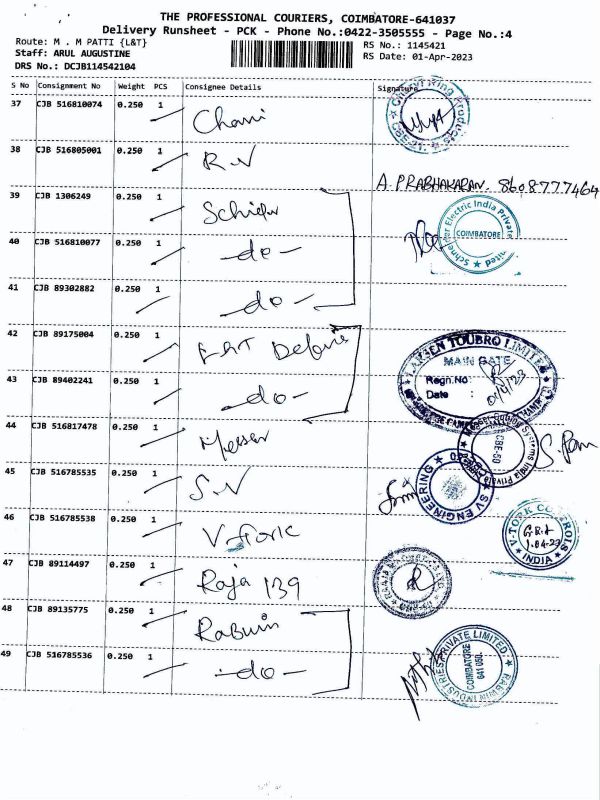 THE PROFESSIONAL COURIERS, COIMBATORE-641037
Delivery Runsheet - PCK - Phone No.:0422-3505555 - Page No.:4
Route: M . M PATTI {L&T}
RS No.: 1145421
Staff: ARUL AUGUSTINE
RS Date: 01-Apr-2023
DRS No.: DCJB114542104
S No Consignment No Weight PCS Consignee Details Signature
37 CJB 516810074 0.250 1
38 CJB 516805001 0.250 1 R.N
A. PRABHAKARAN. 8608777464
39 CJB 1306249 0.250 1
Schneider Electric India Private Limited
COIMBATORE
40 CJB 516810077 0.250 1 -do-
41 CJB 89302882 0.250 1 -do-
42 CJB 89175004 0.250 1
LARSEN TOUBRO LIMITED
MAIN GATE
Regn.No :
Date : 01/4/23
43 CJB 89402241 0.250 1 -do-
44 CJB 516817478 0.250 1
45 CJB 516785535 0.250 1 S.V
SV ENGINEERING
46 CJB 516785538 0.250 1 V-Tork
V-TORK CONTROLS
1.04-23
INDIA
47 CJB 89114497 0.250 1 Raja 139
48 CJB 89135775 0.250 1 Rabwin
RABWIN INDUSTRIES PRIVATE LIMITED
COIMBATORE
641 050.
49 CJB 516785536 0.250 1 -do-